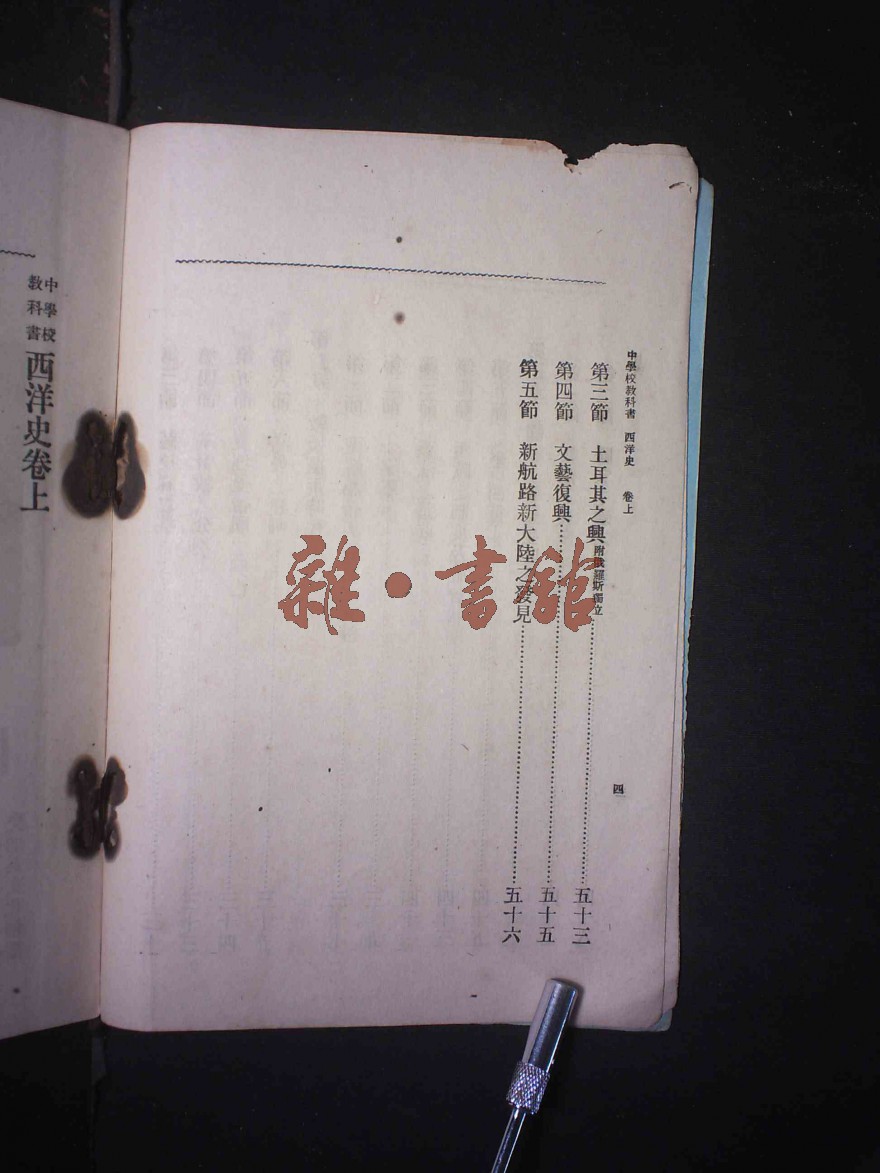 中學校教科書 西洋史 卷上
四
第三節 土耳其之興附俄羅斯獨立 五十三
第四節 文藝復興 五十五
第五節 新航路新大陸之發見 五十六
雜·書館
中學校教科書 西洋史卷上